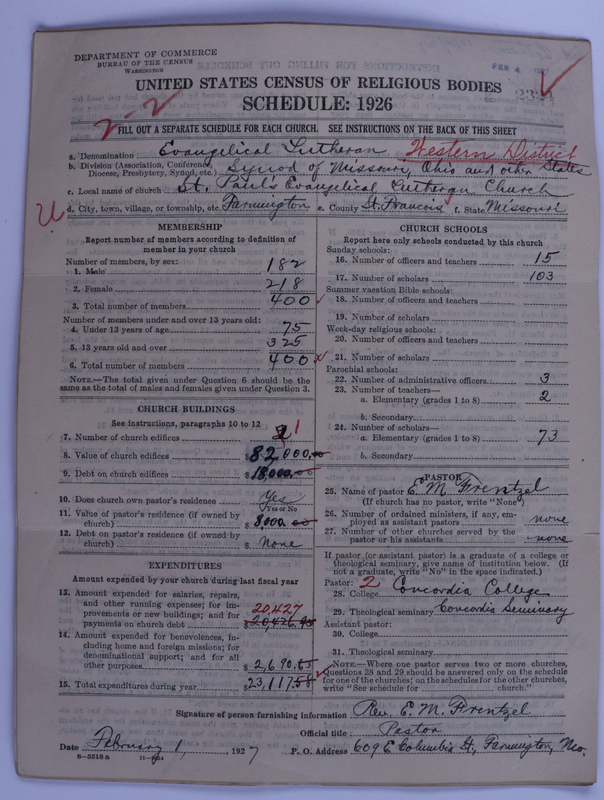 DEPARTMENT OF COMMERCE
BUREAU OF THE CENSUS
WASHINGTON
FEB 4
UNITED STATES CENSUS OF RELIGIOUS BODIES
SCHEDULE: 1926
2-2
FILL OUT A SEPARATE SCHEDULE FOR EACH CHURCH. SEE INSTRUCTIONS ON THE BACK OF THIS SHEET
a. Denomination Evangelical Lutheran Western District
b. Division (Association, Conference, Diocese, Presbytery, Synod, etc.) Synod of Missouri, Ohio and other States
c. Local name of church St. Paul's Evangelical Lutheran Church
d. City, town, village, or township, etc. Farmington e. County St. Francois f. State Missouri
MEMBERSHIP
Report number of members according to definition of
member in your church
Number of members, by sex:
1. Male 182
2. Female 218
3. Total number of members 400
Number of members under and over 13 years old:
4. Under 13 years of age 75
5. 13 years old and over 325
6. Total number of members 400
NOTE.—The total given under Question 6 should be the
same as the total of males and females given under Question 3.
CHURCH BUILDINGS
See instructions, paragraphs 10 to 12
7. Number of church edifices 1
8. Value of church edifices $ 82,000.00
9. Debt on church edifices $ 18,000.00
10. Does church own pastor's residence Yes
Yes or No
11. Value of pastor's residence (if owned by
church) $ 8,000.00
12. Debt on pastor's residence (if owned by
church) $ None
EXPENDITURES
Amount expended by your church during last fiscal year
13. Amount expended for salaries, repairs,
and other running expenses; for im-
provements or new buildings; and for 20,427
payments on church debt $ 20,426.93
14. Amount expended for benevolences, in-
cluding home and foreign missions; for
denominational support; and for all
other purposes $ 2,690.65
15. Total expenditures during year $ 23,117.58
CHURCH SCHOOLS
Report here only schools conducted by this church
Sunday schools:
16. Number of officers and teachers 15
17. Number of scholars 103
Summer vacation Bible schools:
18. Number of officers and teachers
19. Number of scholars
Week-day religious schools:
20. Number of officers and teachers
21. Number of scholars
Parochial schools:
22. Number of administrative officers 3
23. Number of teachers—
a. Elementary (grades 1 to 8) 2
b. Secondary
24. Number of scholars—
a. Elementary (grades 1 to 8) 73
b. Secondary
PASTOR
25. Name of pastor E. M. Frentzel
(If church has no pastor, write "None")
26. Number of ordained ministers, if any, em-
ployed as assistant pastors none
27. Number of other churches served by the
pastor or his assistants none
If pastor (or assistant pastor) is a graduate of a college or
theological seminary, give name of institution below. (If
not a graduate, write "No" in the space indicated.)
Pastor: 2
28. College Concordia College
29. Theological seminary Concordia Seminary
Assistant pastor:
30. College
31. Theological seminary
NOTE.—Where one pastor serves two or more churches,
Questions 28 and 29 should be answered only on the schedule
for one of the churches; on the schedules for the other churches,
write "See schedule for church."
Signature of person furnishing information Rev. E. M. Frentzel
Official title Pastor
Date February 1, 1927 P. O. Address 609 E Columbia St., Farmington, Mo.
8—5518 a